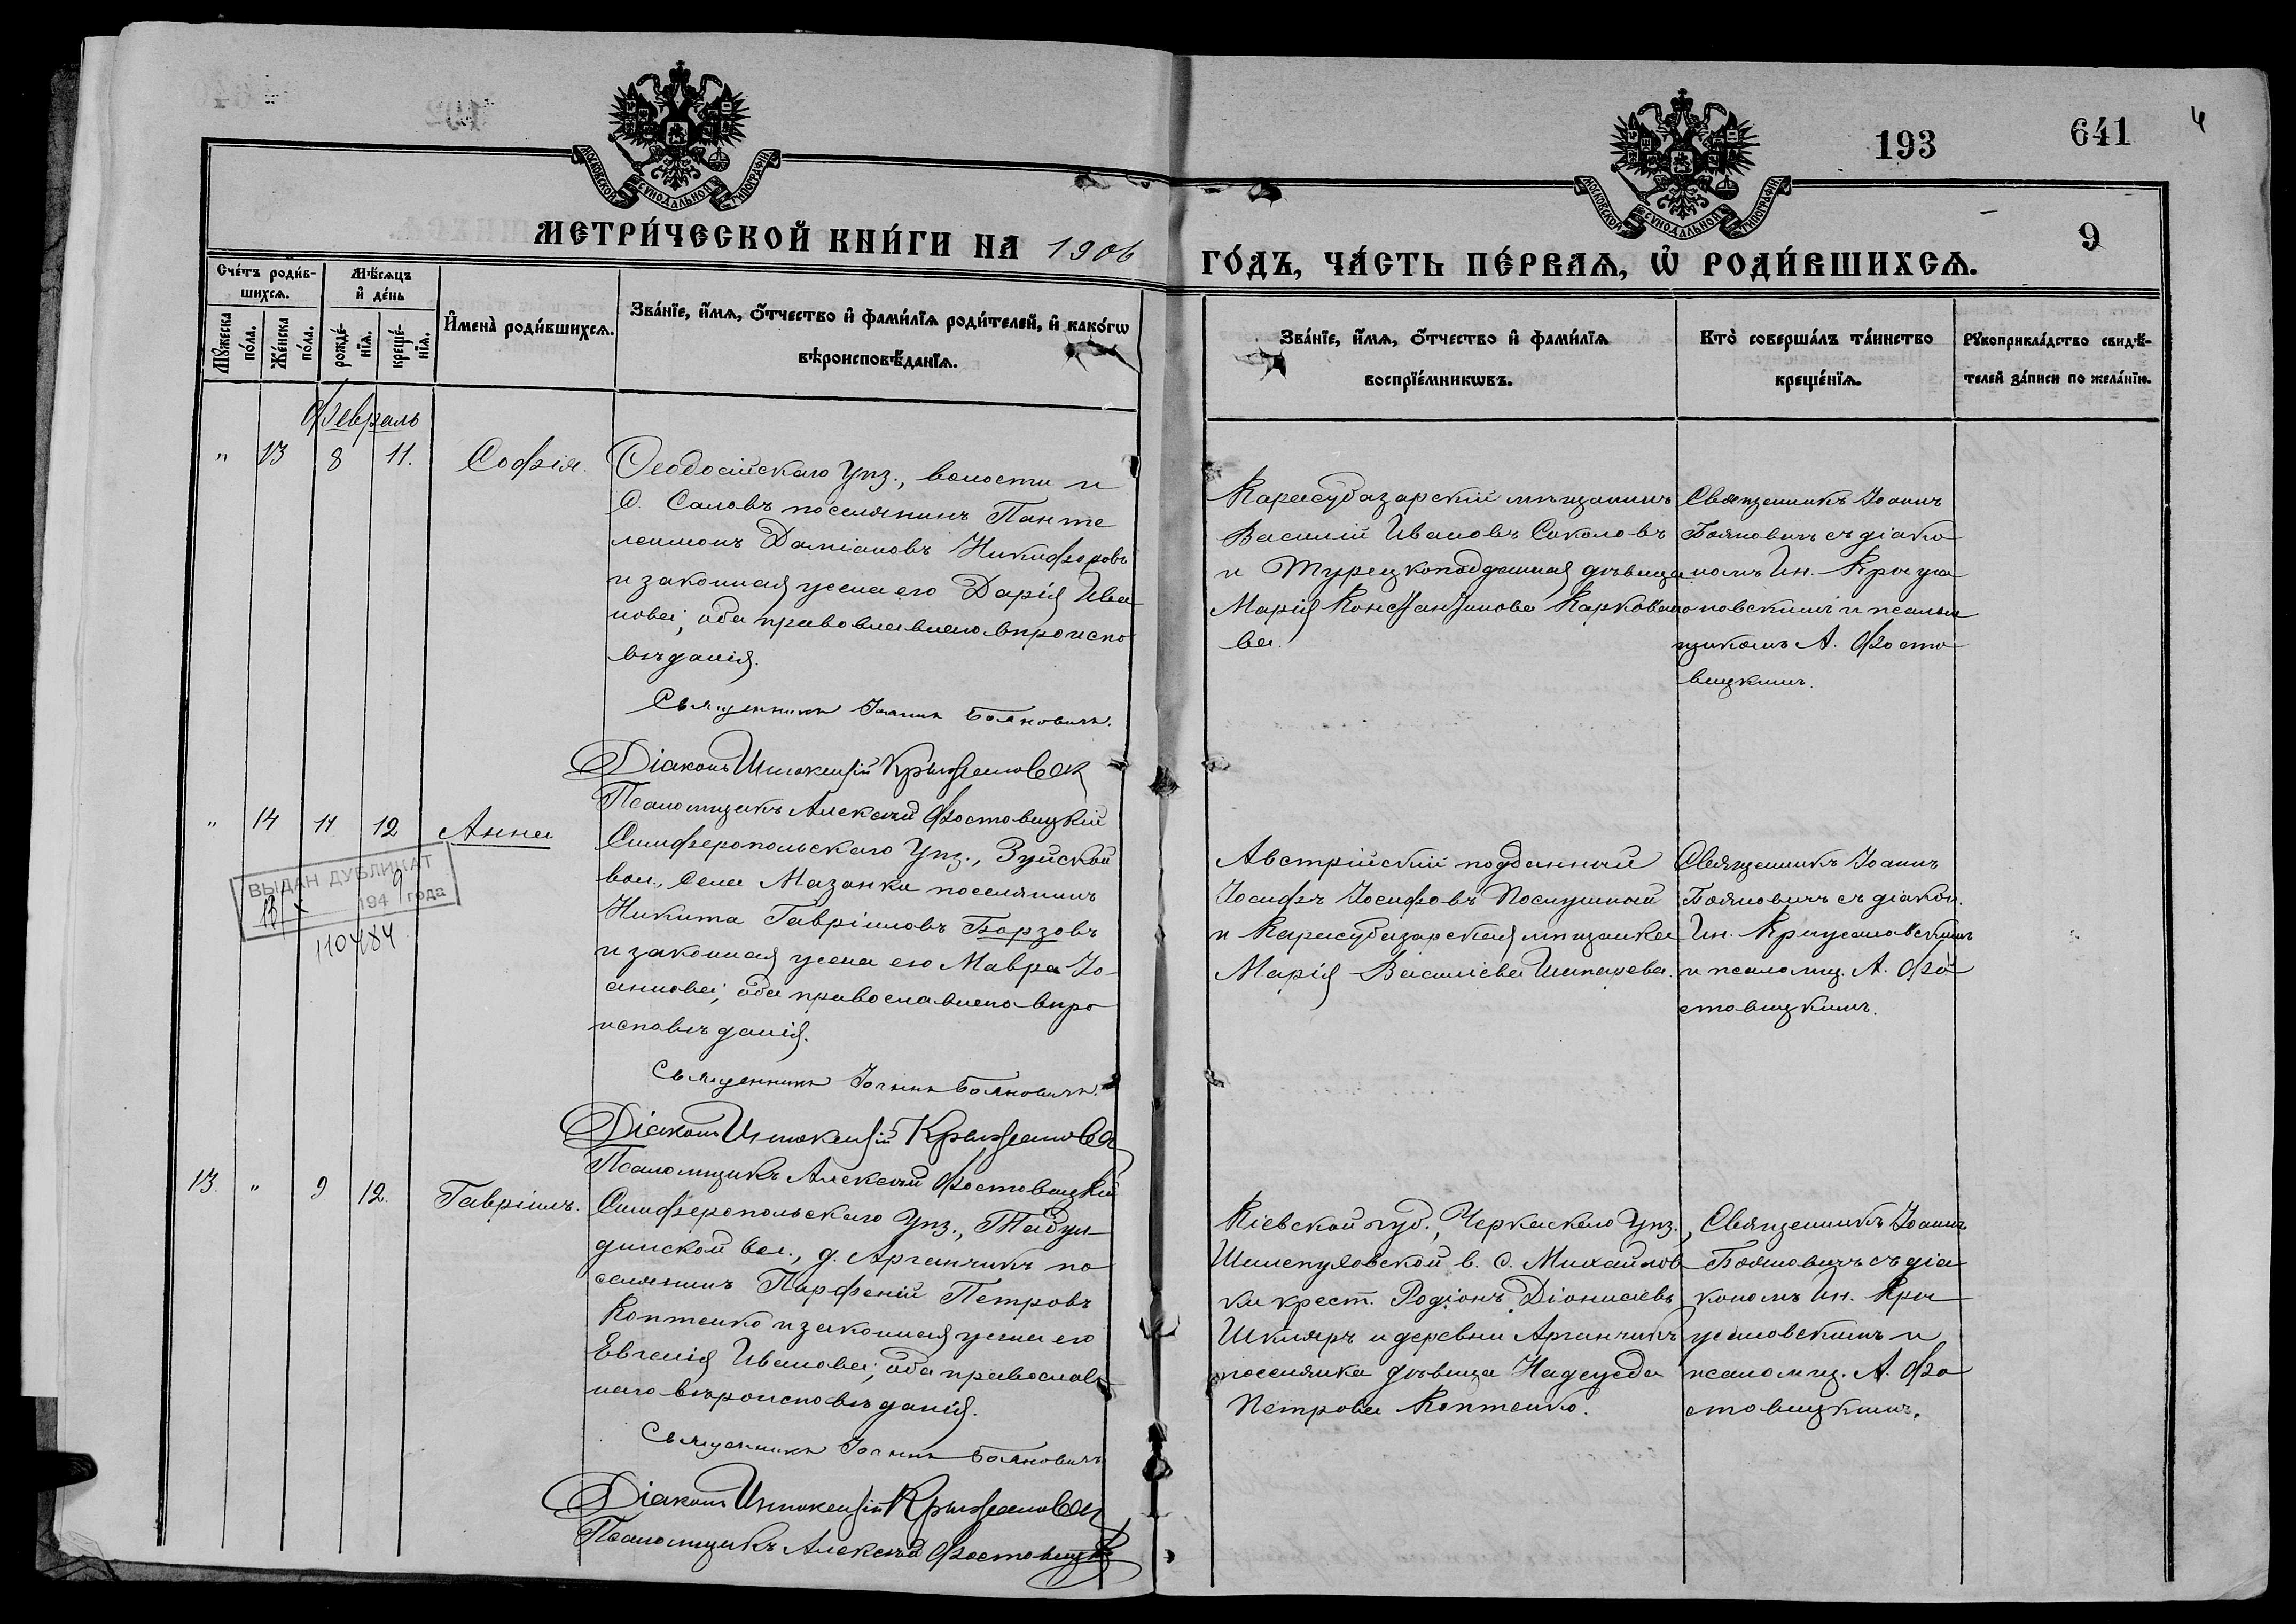 193
641
4
9
МОСКОВСКОЙ СУНОДАЛЬНОЙ ТИПОГРАФІИ
МОСКОВСКОЙ СУНОДАЛЬНОЙ ТИПОГРАФІИ
МЕТРИ́ЧЕСКОЙ КНИ́ГИ НА 1906
ГО́ДЪ, ЧА́СТЬ ПЕ́РВАѦ, Ѡ҆ РОДИ́ВШИХСѦ.
Сче́тъ роди́в-
шихсѧ.
Мꙋжеска
по́ла.
Же́нска
по́ла.
Мѣ́сѧцъ
и҆ де́нь
рожде́-
нїѧ.
креще́-
нїѧ.
И҆мена̀ роди́вшихсѧ.
Зва́нїе, и҆́мѧ, ѻ҆́тчество и҆ фами́лїѧ роди́телей, и҆ како́гѡ
вѣроисповѣ́данїѧ.
Зва́нїе, и҆́мѧ, ѻ҆́тчество и҆ фами́лїѧ
воспрїе́мникѡвъ.
Кто̀ соверша́лъ та́инство
креще́нїѧ.
Рꙋкоприкла́дство свидѣ́-
телей за́писи по жела́нїю.
Февраль
" 13 8 11. Софія.
Ѳеодосійскаго уѣз., волости и
д. Саловъ поселянинъ Панте
леимонъ Даміановъ Никифоровъ
и законная жена его Дарія Ива
нова; оба православнаго вѣроиспо
вѣданія.
Священникъ Іоаннъ Бояновичъ.
Діаконъ Иннокентій Крыжановск
Псаломщикъ Алексѣй Фостовицкій
Карасубазарскій мѣщанинъ
Василій Ивановъ Соколовъ
и Турецкоподданная дѣвица
Марія Константинова Каркова
ва.
Священникъ Іоаннъ
Бояновичъ съ діако
номъ Ин. Крыжа
новскимъ и псалом
щикомъ А. Фосто
вицкимъ.
" 14 11 12 Анна
ВЫДАН ДУБЛИКАТ
13/X 1949 года
110484
Симферопольскаго уѣз., Зуйской
вол., села Мазанки поселянинъ
Никита Гавріиловъ Борзовъ
и законная жена его Мавра Іо-
аннова; оба православнаго вѣро
исповѣданія.
Священникъ Іоаннъ Бояновичъ.
Діаконъ Иннокентій Крыжановск
Псаломщикъ Алексѣй Фостовицкій
Австрійскій подданный
Іосифъ Іосифовъ Послушный
и Карасубазарская мѣщанка
Марія Васильева
Священникъ Іоаннъ
Бояновичъ съ діакон.
Ин. Крыжановскимъ
и псаломщ. А. Фо
стовицкимъ.
13. " 9 12. Гавріилъ.
Симферопольскаго уѣз., Табул-
динской вол., д. Арганчикъ по
селянинъ Парфеній Петровъ
Коптенко и законная жена его
Евгенія Иванова; оба православ
наго вѣроисповѣданія.
Священникъ Іоаннъ Бояновичъ
Діаконъ Иннокентій Крыжановск
Псаломщикъ Алексѣй Фостовицк
Кіевской губ., Черкаскаго уѣз.,
в. с. Михайлов
ки крест. Родіонъ Діонисіевъ
Шкляръ и деревни Арганчикъ
поселянка дѣвица Надежда
Петрова Коптенко.
Священникъ Іоаннъ
Бояновичъ съ діа
кономъ Ин. Кры
жановскимъ и
псаломщ. А. Фо
стовицкимъ.